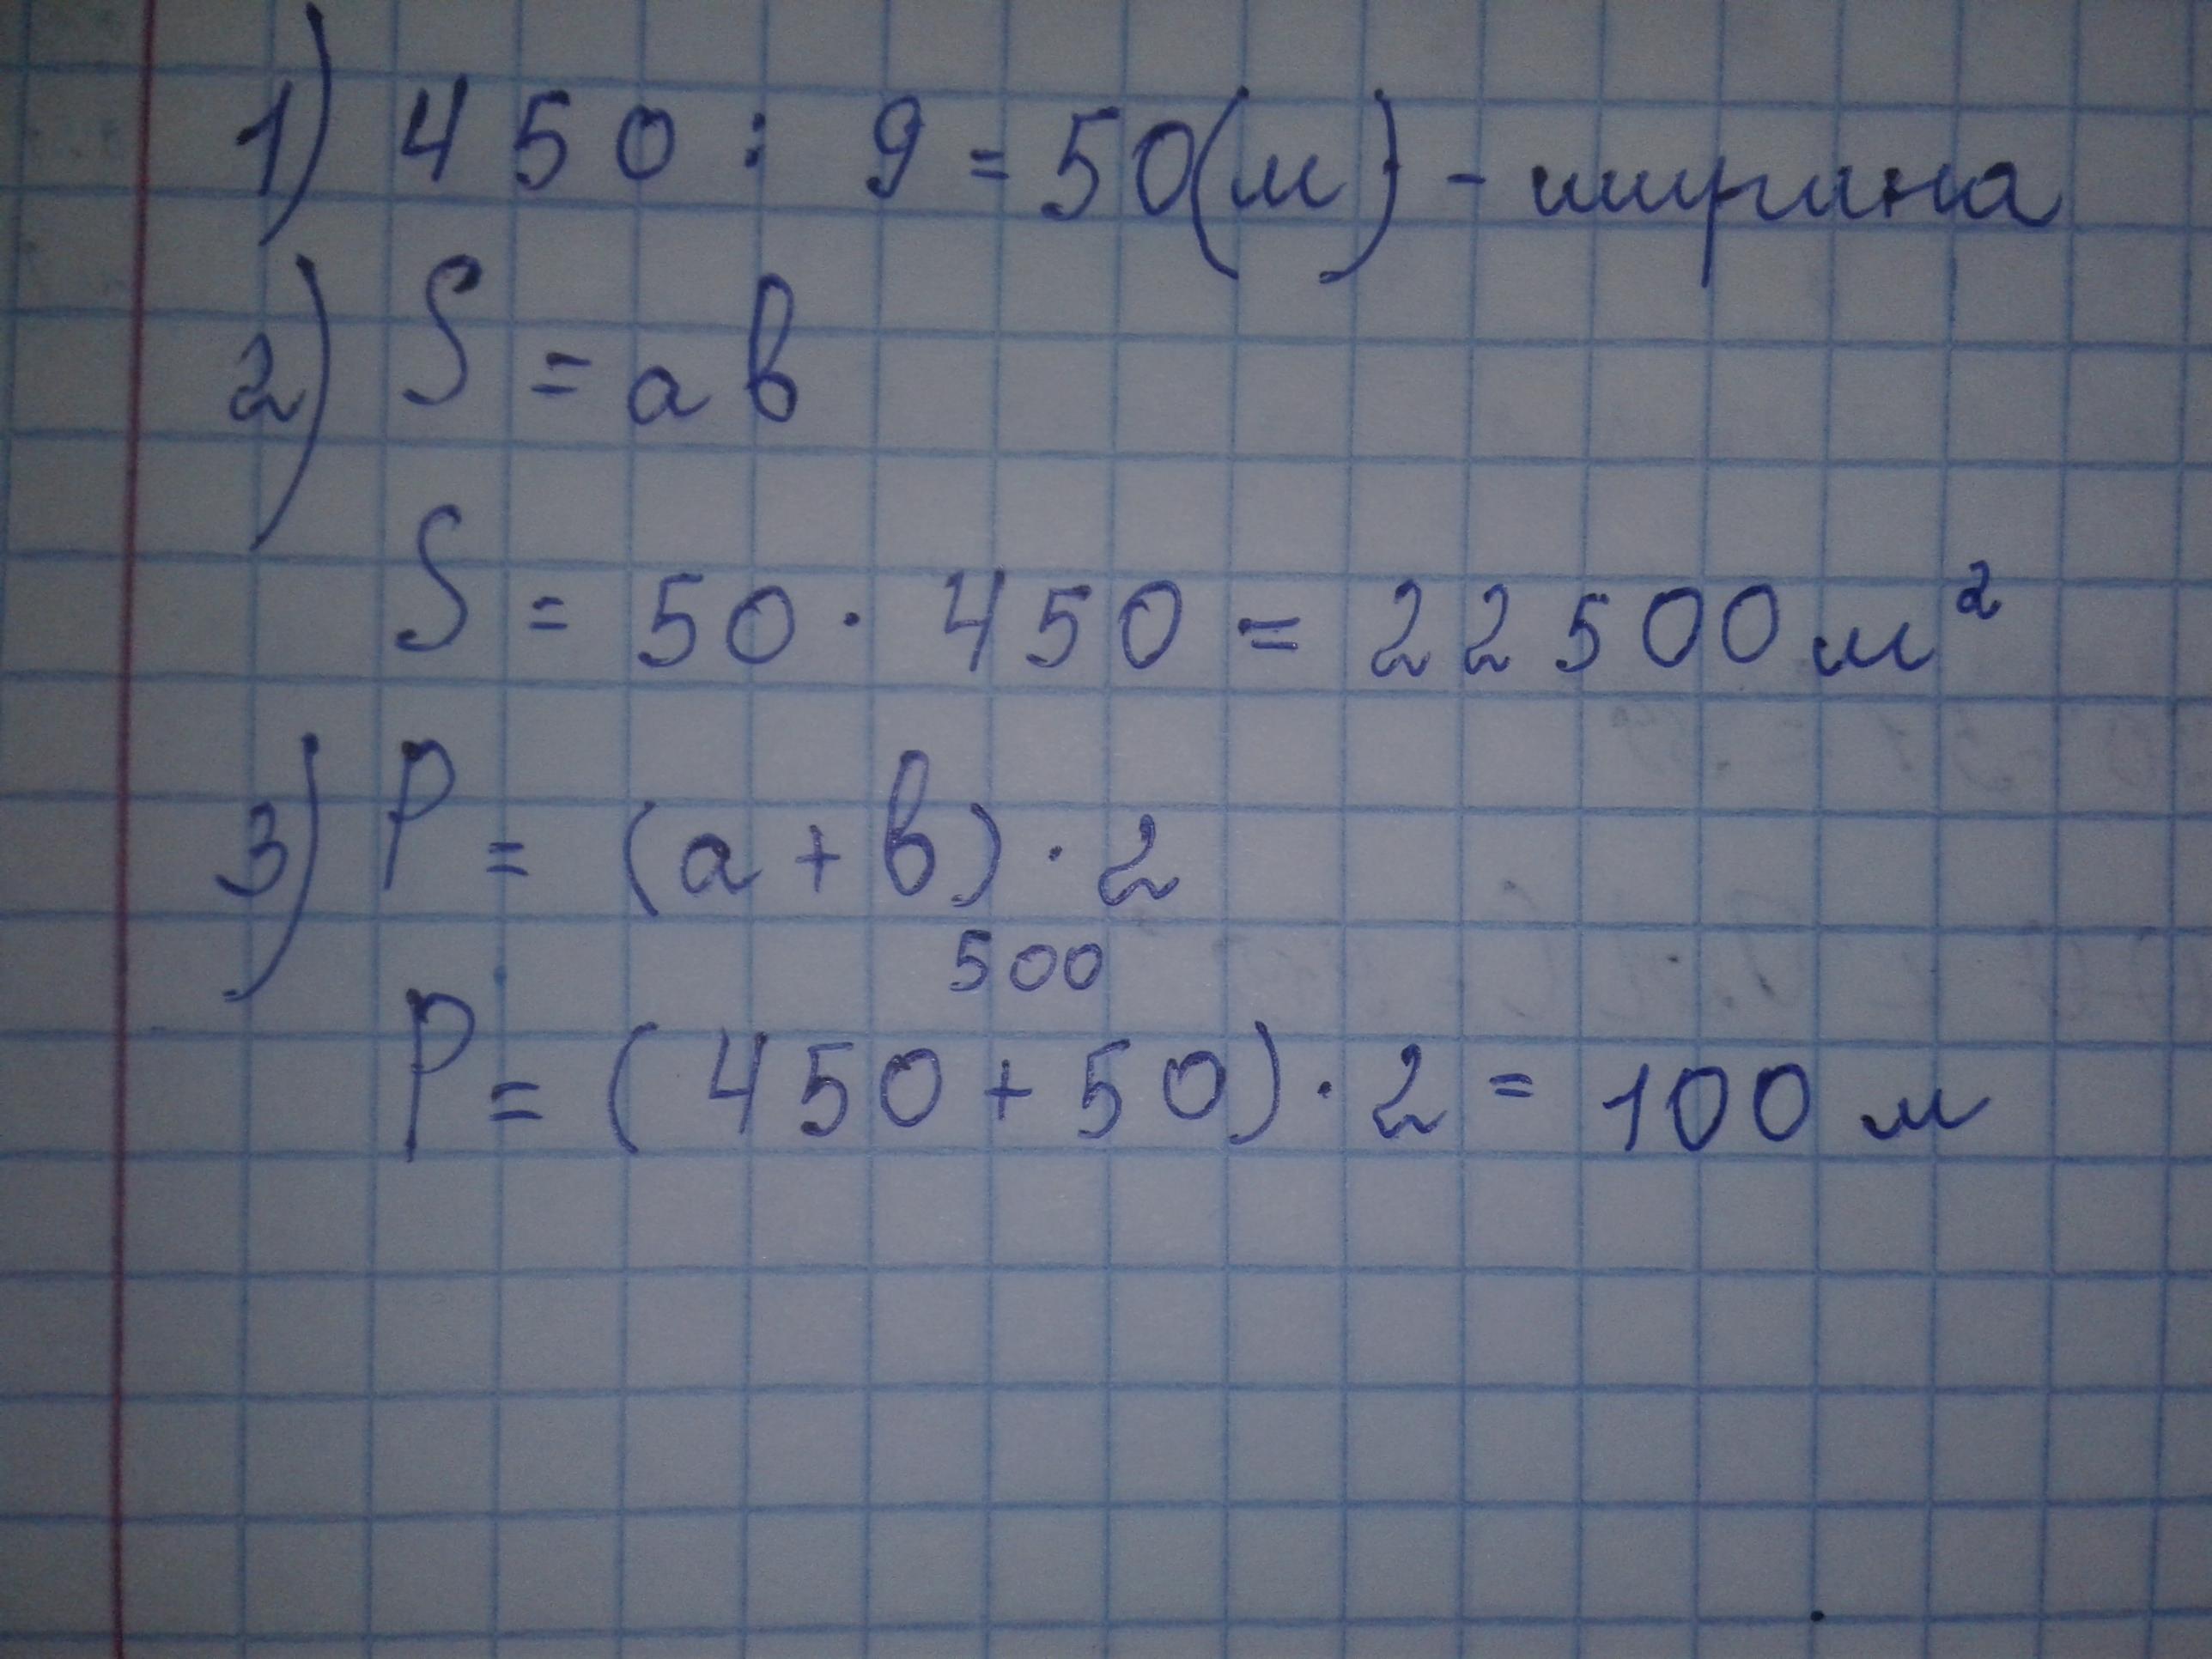 1) 450 : 9 = 50(м) - ширина
2) S = ав
S = 50 · 450 = 22500 м²
3) P = (а + в) · 2
500
P = (450 + 50) · 2 = 100 м